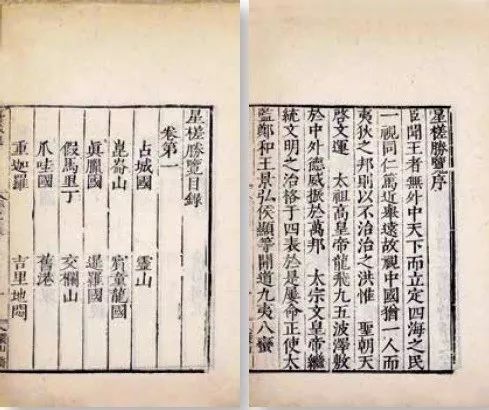 星槎勝覽序
臣聞王者無外中天下而立定四海之民
一視同仁篤近舉遠故視中國猶一人而
夷狄之邦則以不治治之洪惟 聖朝天
啓文運 太祖高皇帝龍飛九五波澤敷
於中外德威振於萬邦 太宗文皇帝繼
統文明之治格于四表於是屢命正使太
監鄭和王景弘侯顯等開道九夷八蠻
星槎勝覽目錄
卷第一
占城國 靈山
崑崙山 賓童龍國
眞臘國 暹羅國
假馬里丁 交欄山
爪哇國 舊港
重迦羅 吉里地悶